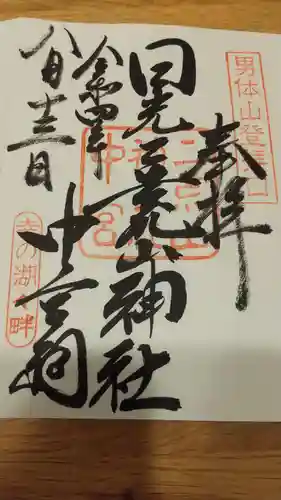 男体山登拝口
奉拝
日光二荒山神社
中宮祠
令和四年
八月十三日
幸の湖畔